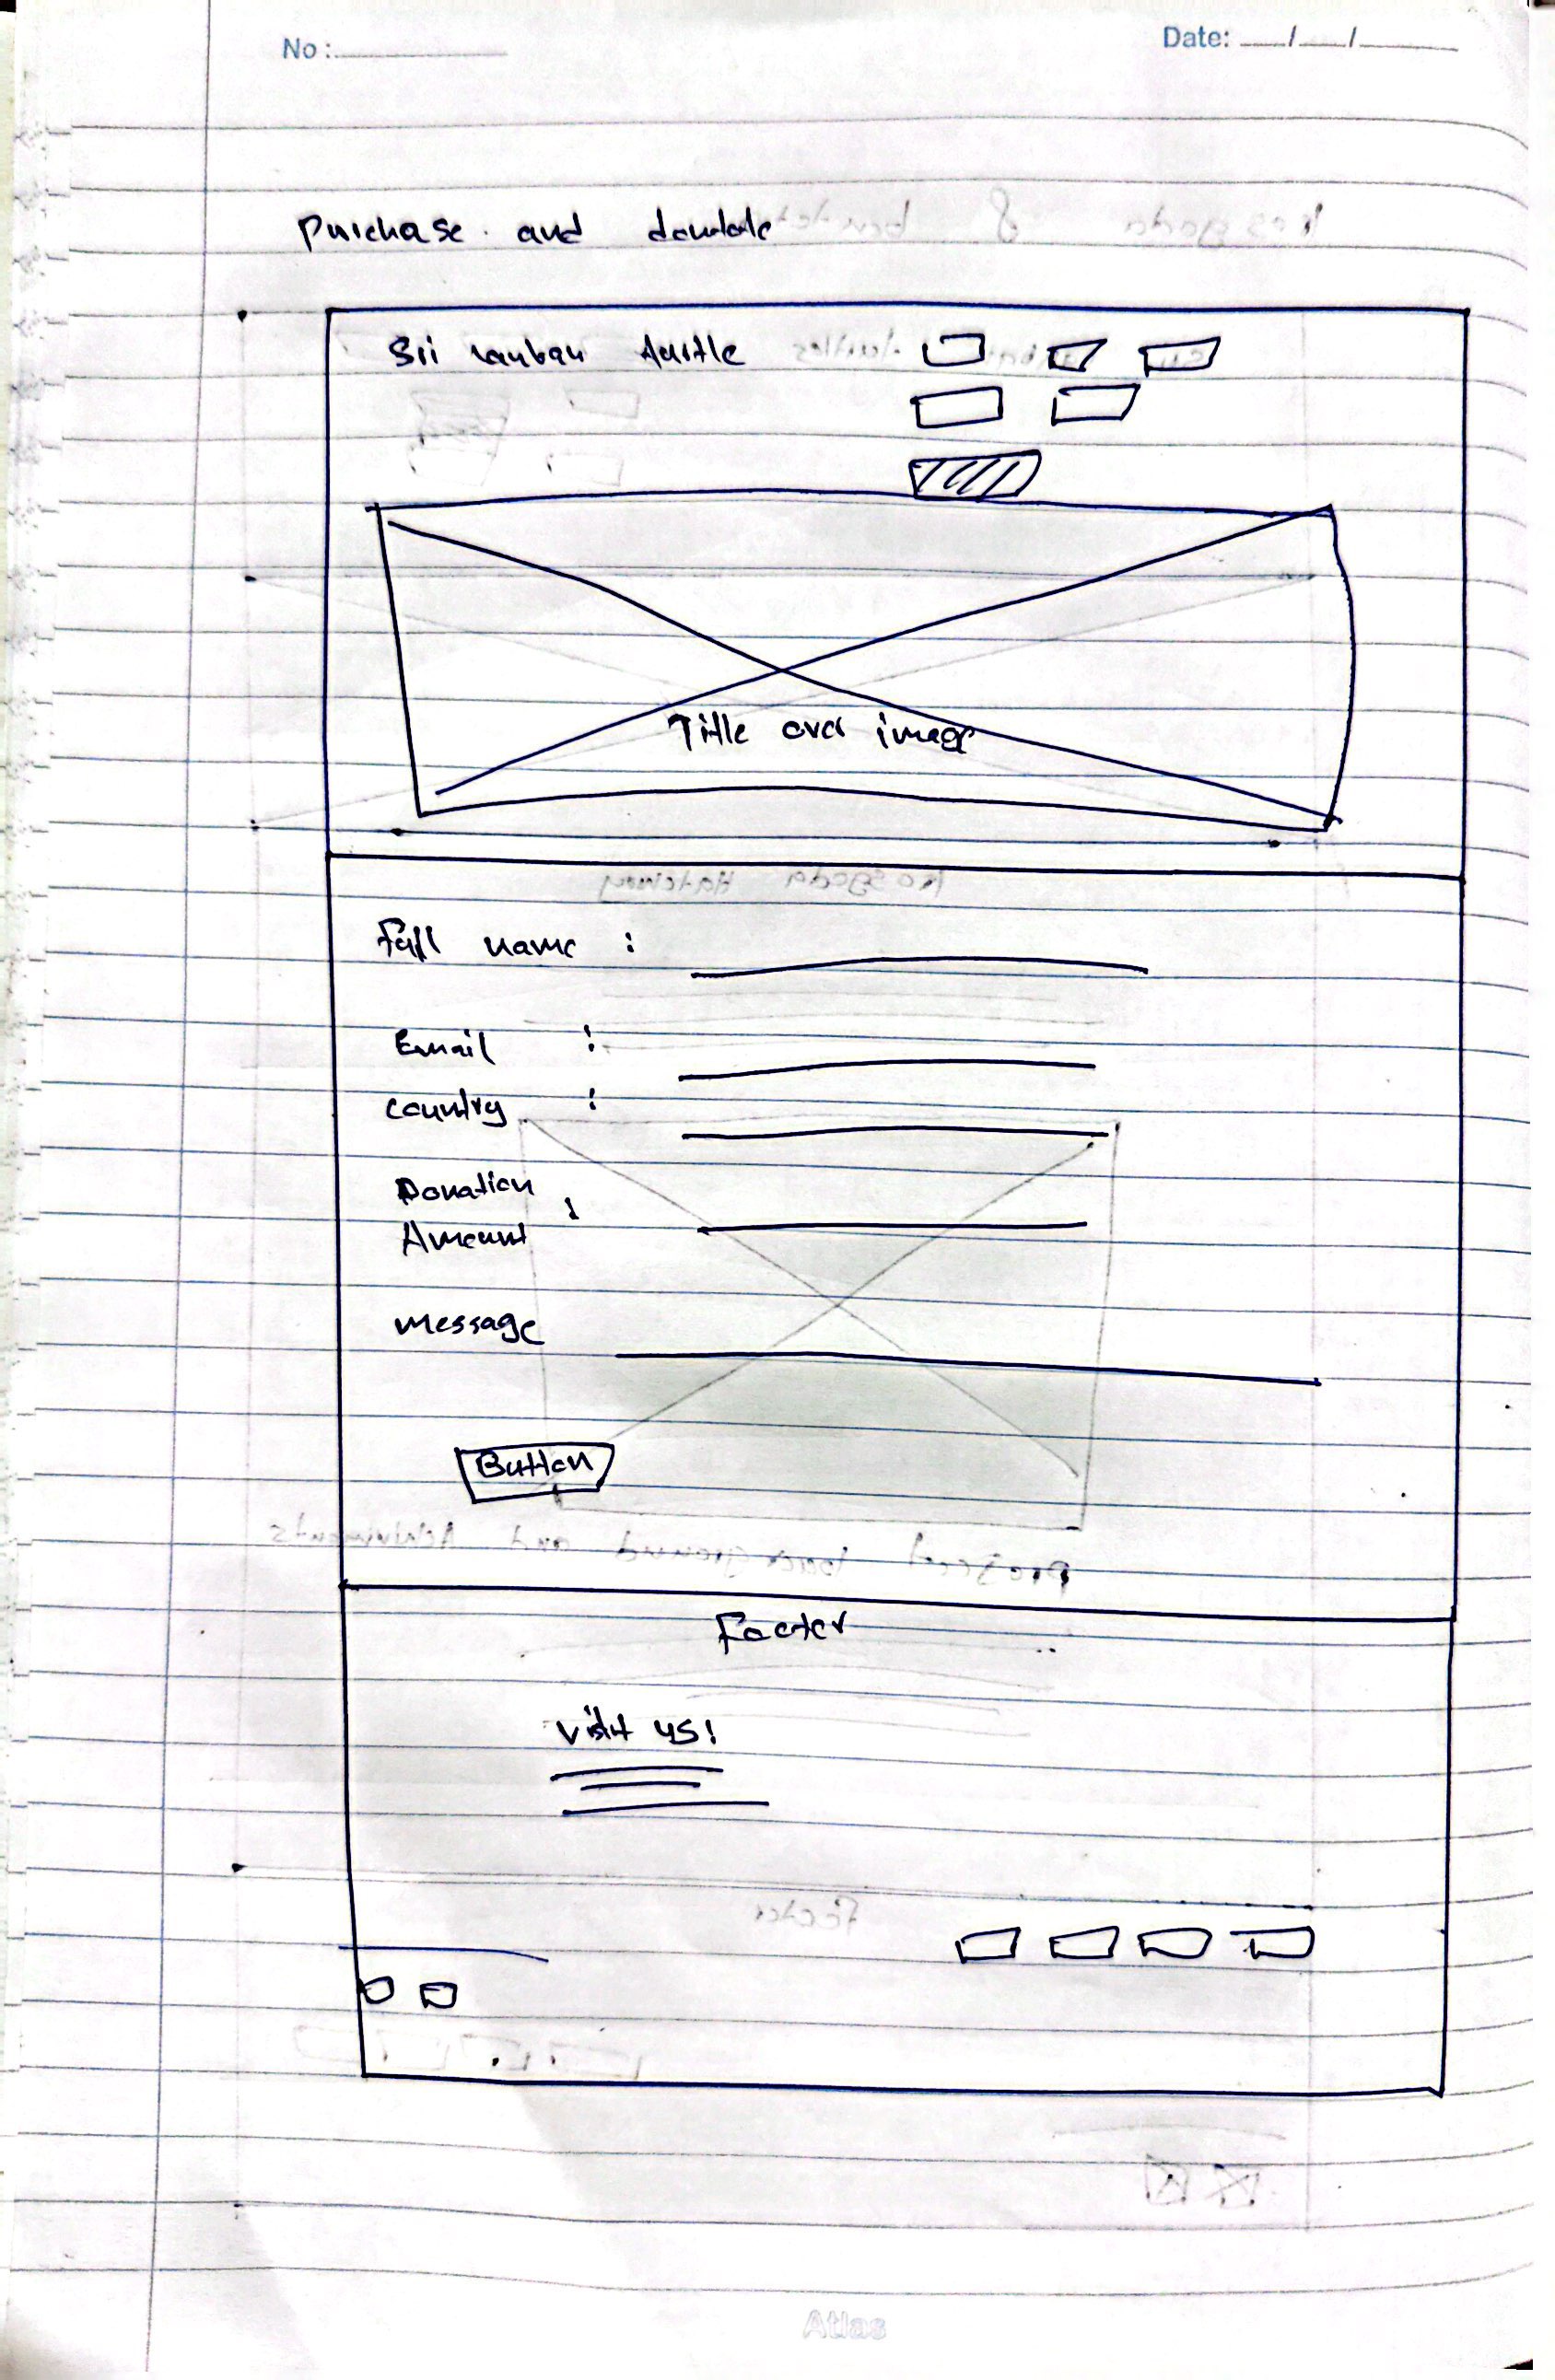 No :
Date: / /
Purchase and
Sri Turtle
Title over image
Full name :
Email :
country :
Donation :
Amount
Message
Button
Footer
visit us!
Atlas